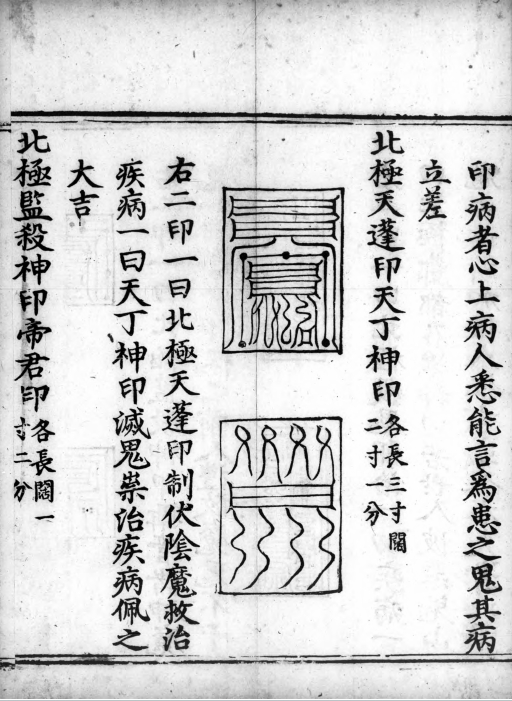 印病者心上病人悉能言為患之鬼其病
立差
北極天蓬印天丁神印各長三寸闊
二寸一分
右二印一曰北極天蓬印制伏陰魔救治
疾病一曰天丁神印滅鬼祟治疾病佩之
大吉
北極監殺神印帝君印各長闊一
寸二分